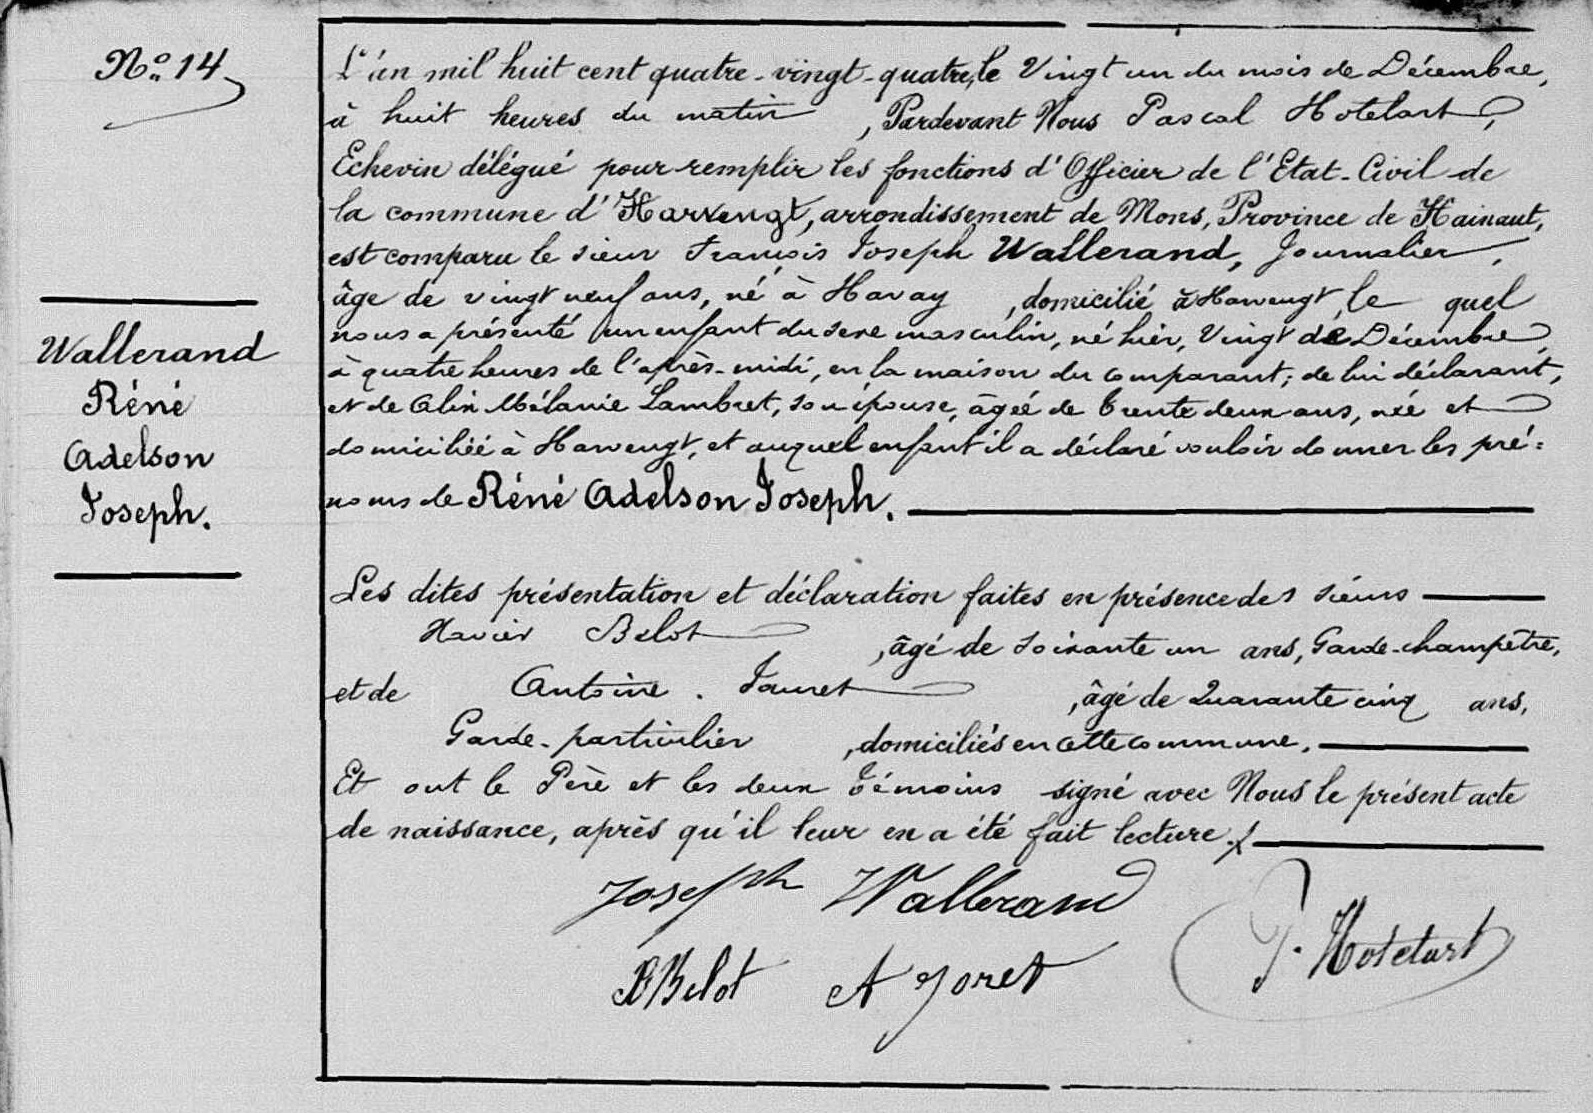 No 14
L'an mil huit cent quatre-vingt-quatre, le Vingt un du mois de Décembre,
à huit heures du matin, Pardevant Nous Pascal Hotelart,
Echevin délégué pour remplir les fonctions d'Officier de l'Etat-Civil de
la commune d'Harvengt, arrondissement de Mons, Province de Hainaut,
est comparu le sieur François Joseph Wallerand, Journalier,
âge de vingt neuf ans, né à Havay, domicilié à Harvengt, le quel
nous a présenté un enfant du sexe masculin, né hier, Vingt de Décembre,
à quatre heures de l'après-midi, en la maison du comparant; de lui déclarant,
et de Mélanie Lambret, son épouse, âgée de trente deux ans, née et
domiciliée à Harvengt, et auquel enfant il a déclaré vouloir donner les pré=
noms de Réné Adelson Joseph.
Wallerand
Réné
Adelson
Joseph.
Les dites présentation et déclaration faites en présence des sieurs
Xavier Belot, âgé de soixante un ans, Garde-champêtre,
et de Antoine Jauret, âgé de Quarante cinq ans,
Garde-particulier, domiciliés en cette commune.
Et ont le Père et les deux témoins signé avec Nous le présent acte
de naissance, après qu'il leur en a été fait lecture.
Joseph Wallerand
XBelot A Joret P. Hotelart